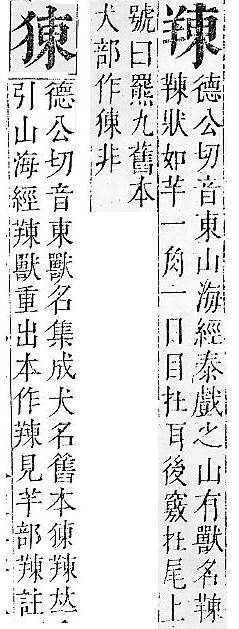 䍶
德公切音東山海經泰戲之山有獸名䍶
䍶狀如羊一角一目目在耳後竅在尾上
號曰羆九舊本
犬部作非
德公切音東獸名集成犬名舊本䍶𠀤
引山海經䍶獸重出本作䍶見羊部䍶註